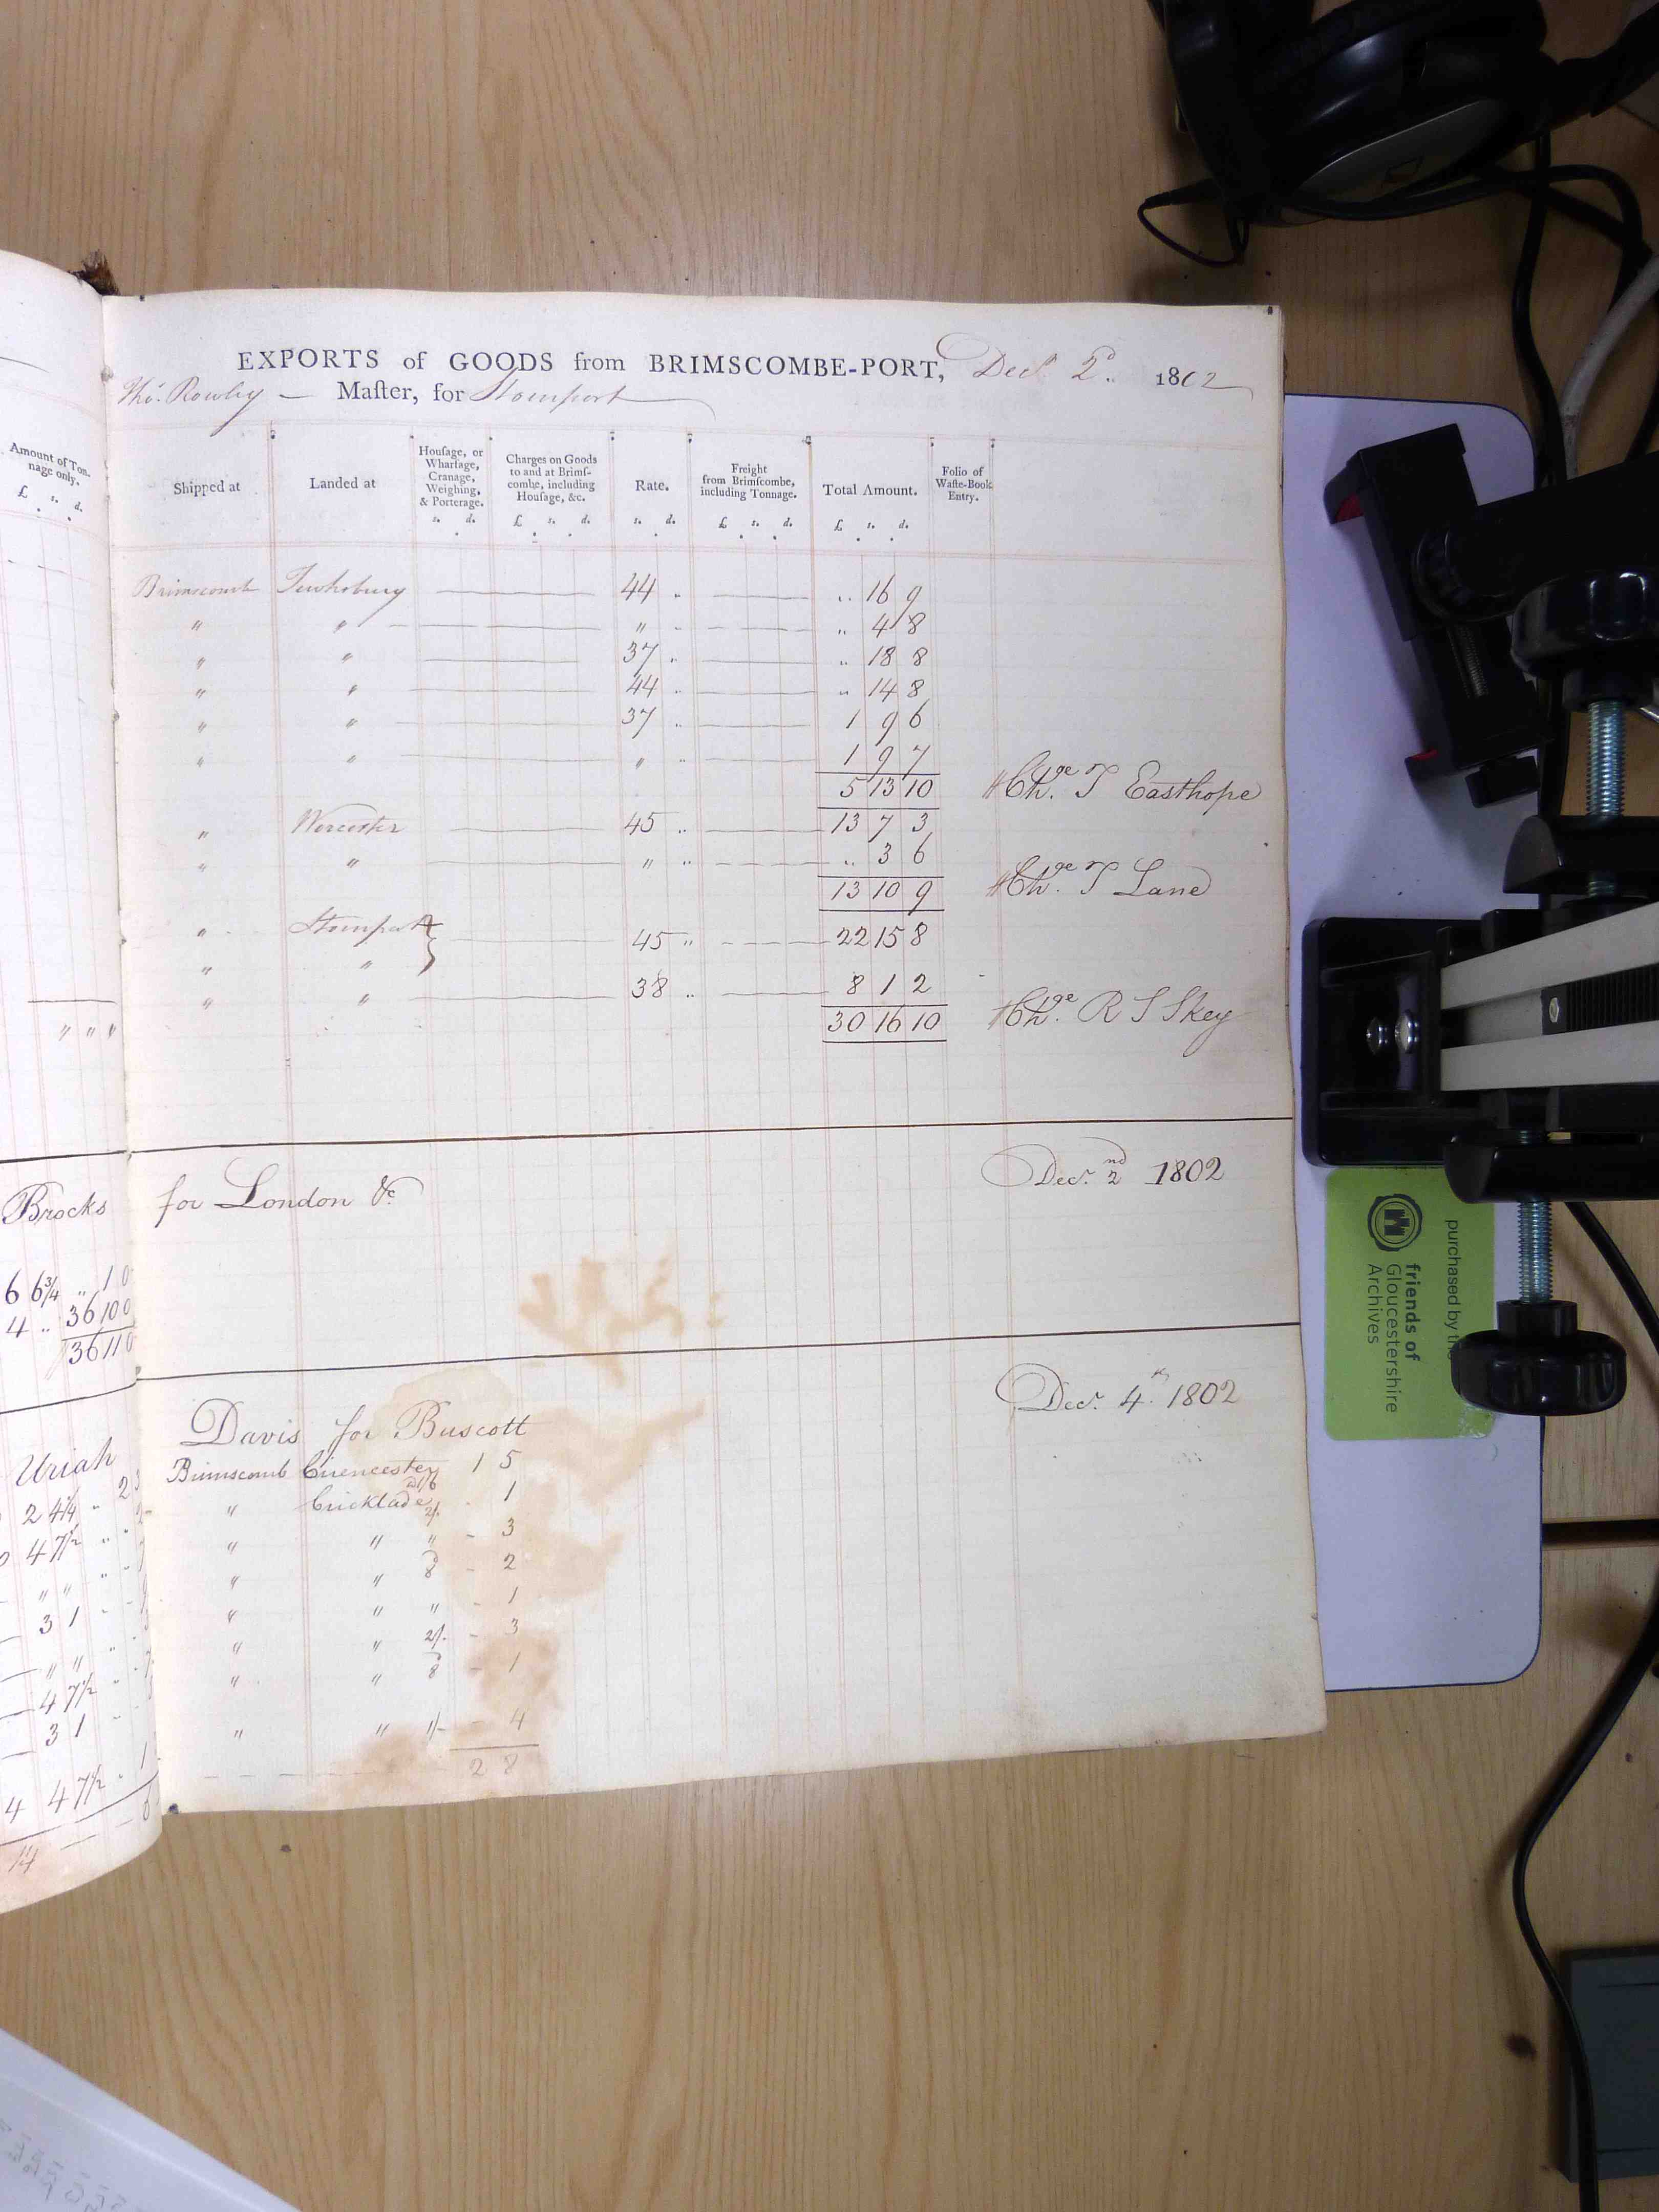 EXPORTS of GOODS from BRIMSCOMBE-PORT, Decr 2d. 1802
Thos. Rowley — Maſter, for Stourport
Amount of Ton-
nage only.
£ s. d.
Shipped at
Landed at
Houſage, or
Wharfage,
Cranage,
Weighing,
& Porterage.
s. d.
Charges on Goods
to and at Brimſ-
combe, including
Houſage, &c.
£ s. d.
Rate.
s. d.
Freight
from Brimſcombe,
including Tonnage.
£ s. d.
Total Amount.
£ s. d.
Folio of
Waſte-Book
Entry.
Brimscomb Tewksbury 44 " " 16 9
" " " " " 4 8
" " 37 " " 18 8
" " 44 " " 14 8
" " 37 " 1 9 6
" " " " 1 9 7
5 13 10 Chge. T Easthope
" Worcester 45 " 13 7 3
" " " " " 3 6
13 10 9 Chge. T Lane
" Stourport 45 " 22 15 8
" "
" " 38 " 8 1 2
30 16 10 Chge. R S Skey
Brocks for London &c Decr. 2nd 1802
6 6¾ " 1 0
4 " 36 10 0
36 11 0
Uriah Davis for Buscott Decr. 4th. 1802
Brimscomb Cirencester 1 5
" Cricklade 2/- 1
" " " - 3
" " 8d - 2
" " " - 1
" " 2/- - 3
" " 8d - 1
" " 1/- - 4
2 8
2 4¼
4 7½
" "
3 1
" "
4 7½
3 1
4 4 7½
14
purchased by the
friends of
Gloucestershire
Archives